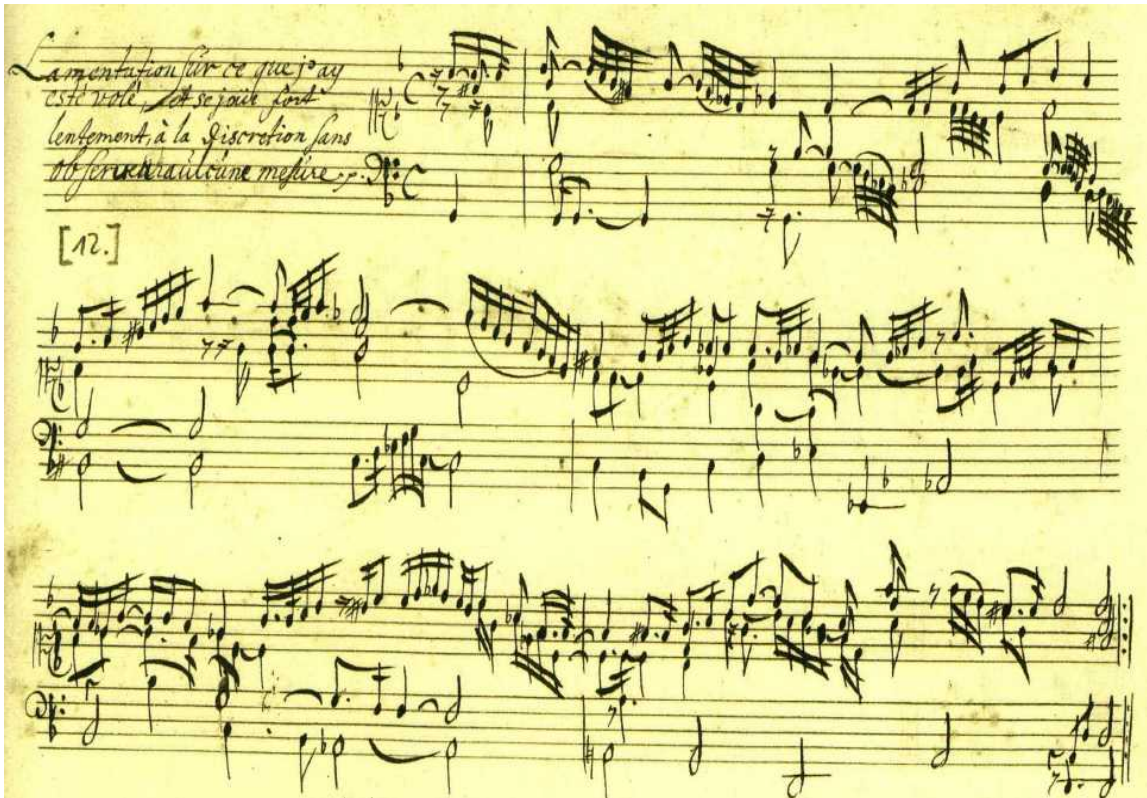 Lamentation sur ce que j'ay
esté volé, et se joüe fort
lentement, à la discretion sans
observer aulcüne mesüre
[12.]